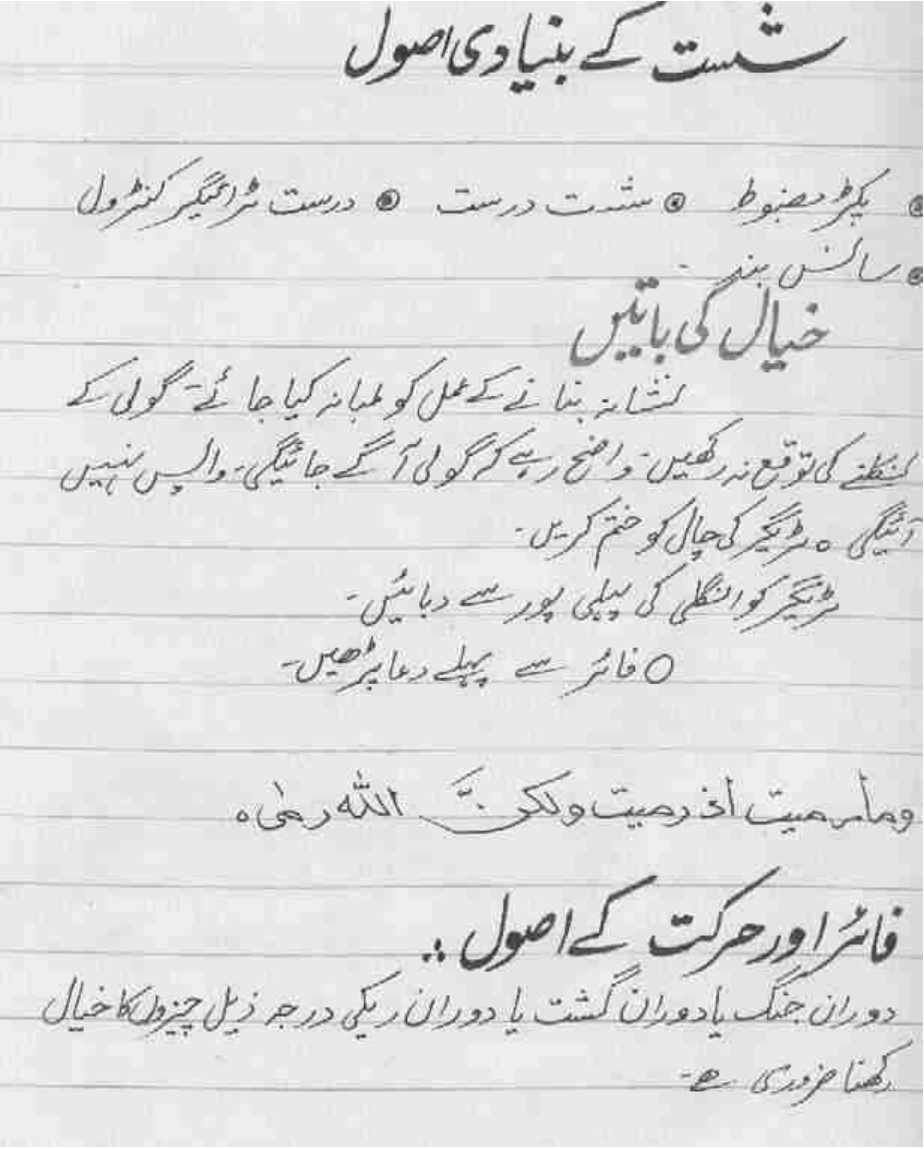 شست کے بنیادی اصول
◉ پکڑ مضبوط ◉ شست درست ◉ درست ٹرائیگر کنٹرول
◉ سانس بند -
خیال کی باتیں
نشانہ بنانے کے عمل کو لمبا نہ کیا جائے - گولی کے
نکلنے کی توقع نہ رکھیں - واضح رہے کہ گولی آگے جائیگی - واپس نہیں
آئیگی ٥ ٹریگر کی چال کو ختم کریں -
ٹریگر کو انگلی کی پہلی پور سے دبائیں -
○ فائر سے پہلے دعا پڑھیں -
ومارميت اذ رميت ولكنَّ الله رمىٰ ٥
فائر اور حرکت کے اصول :.
دوران جنگ یا دوران گشت یا دوران ریکی درجہ ذیل چیزوں کا خیال
رکھنا ضروری ہے -